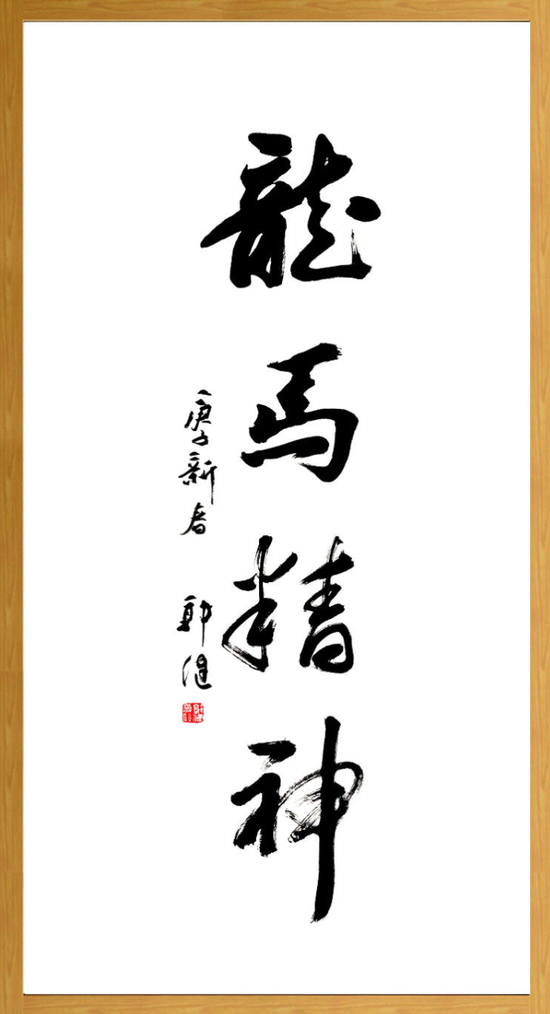 龍馬精神
庚子新春 郭健